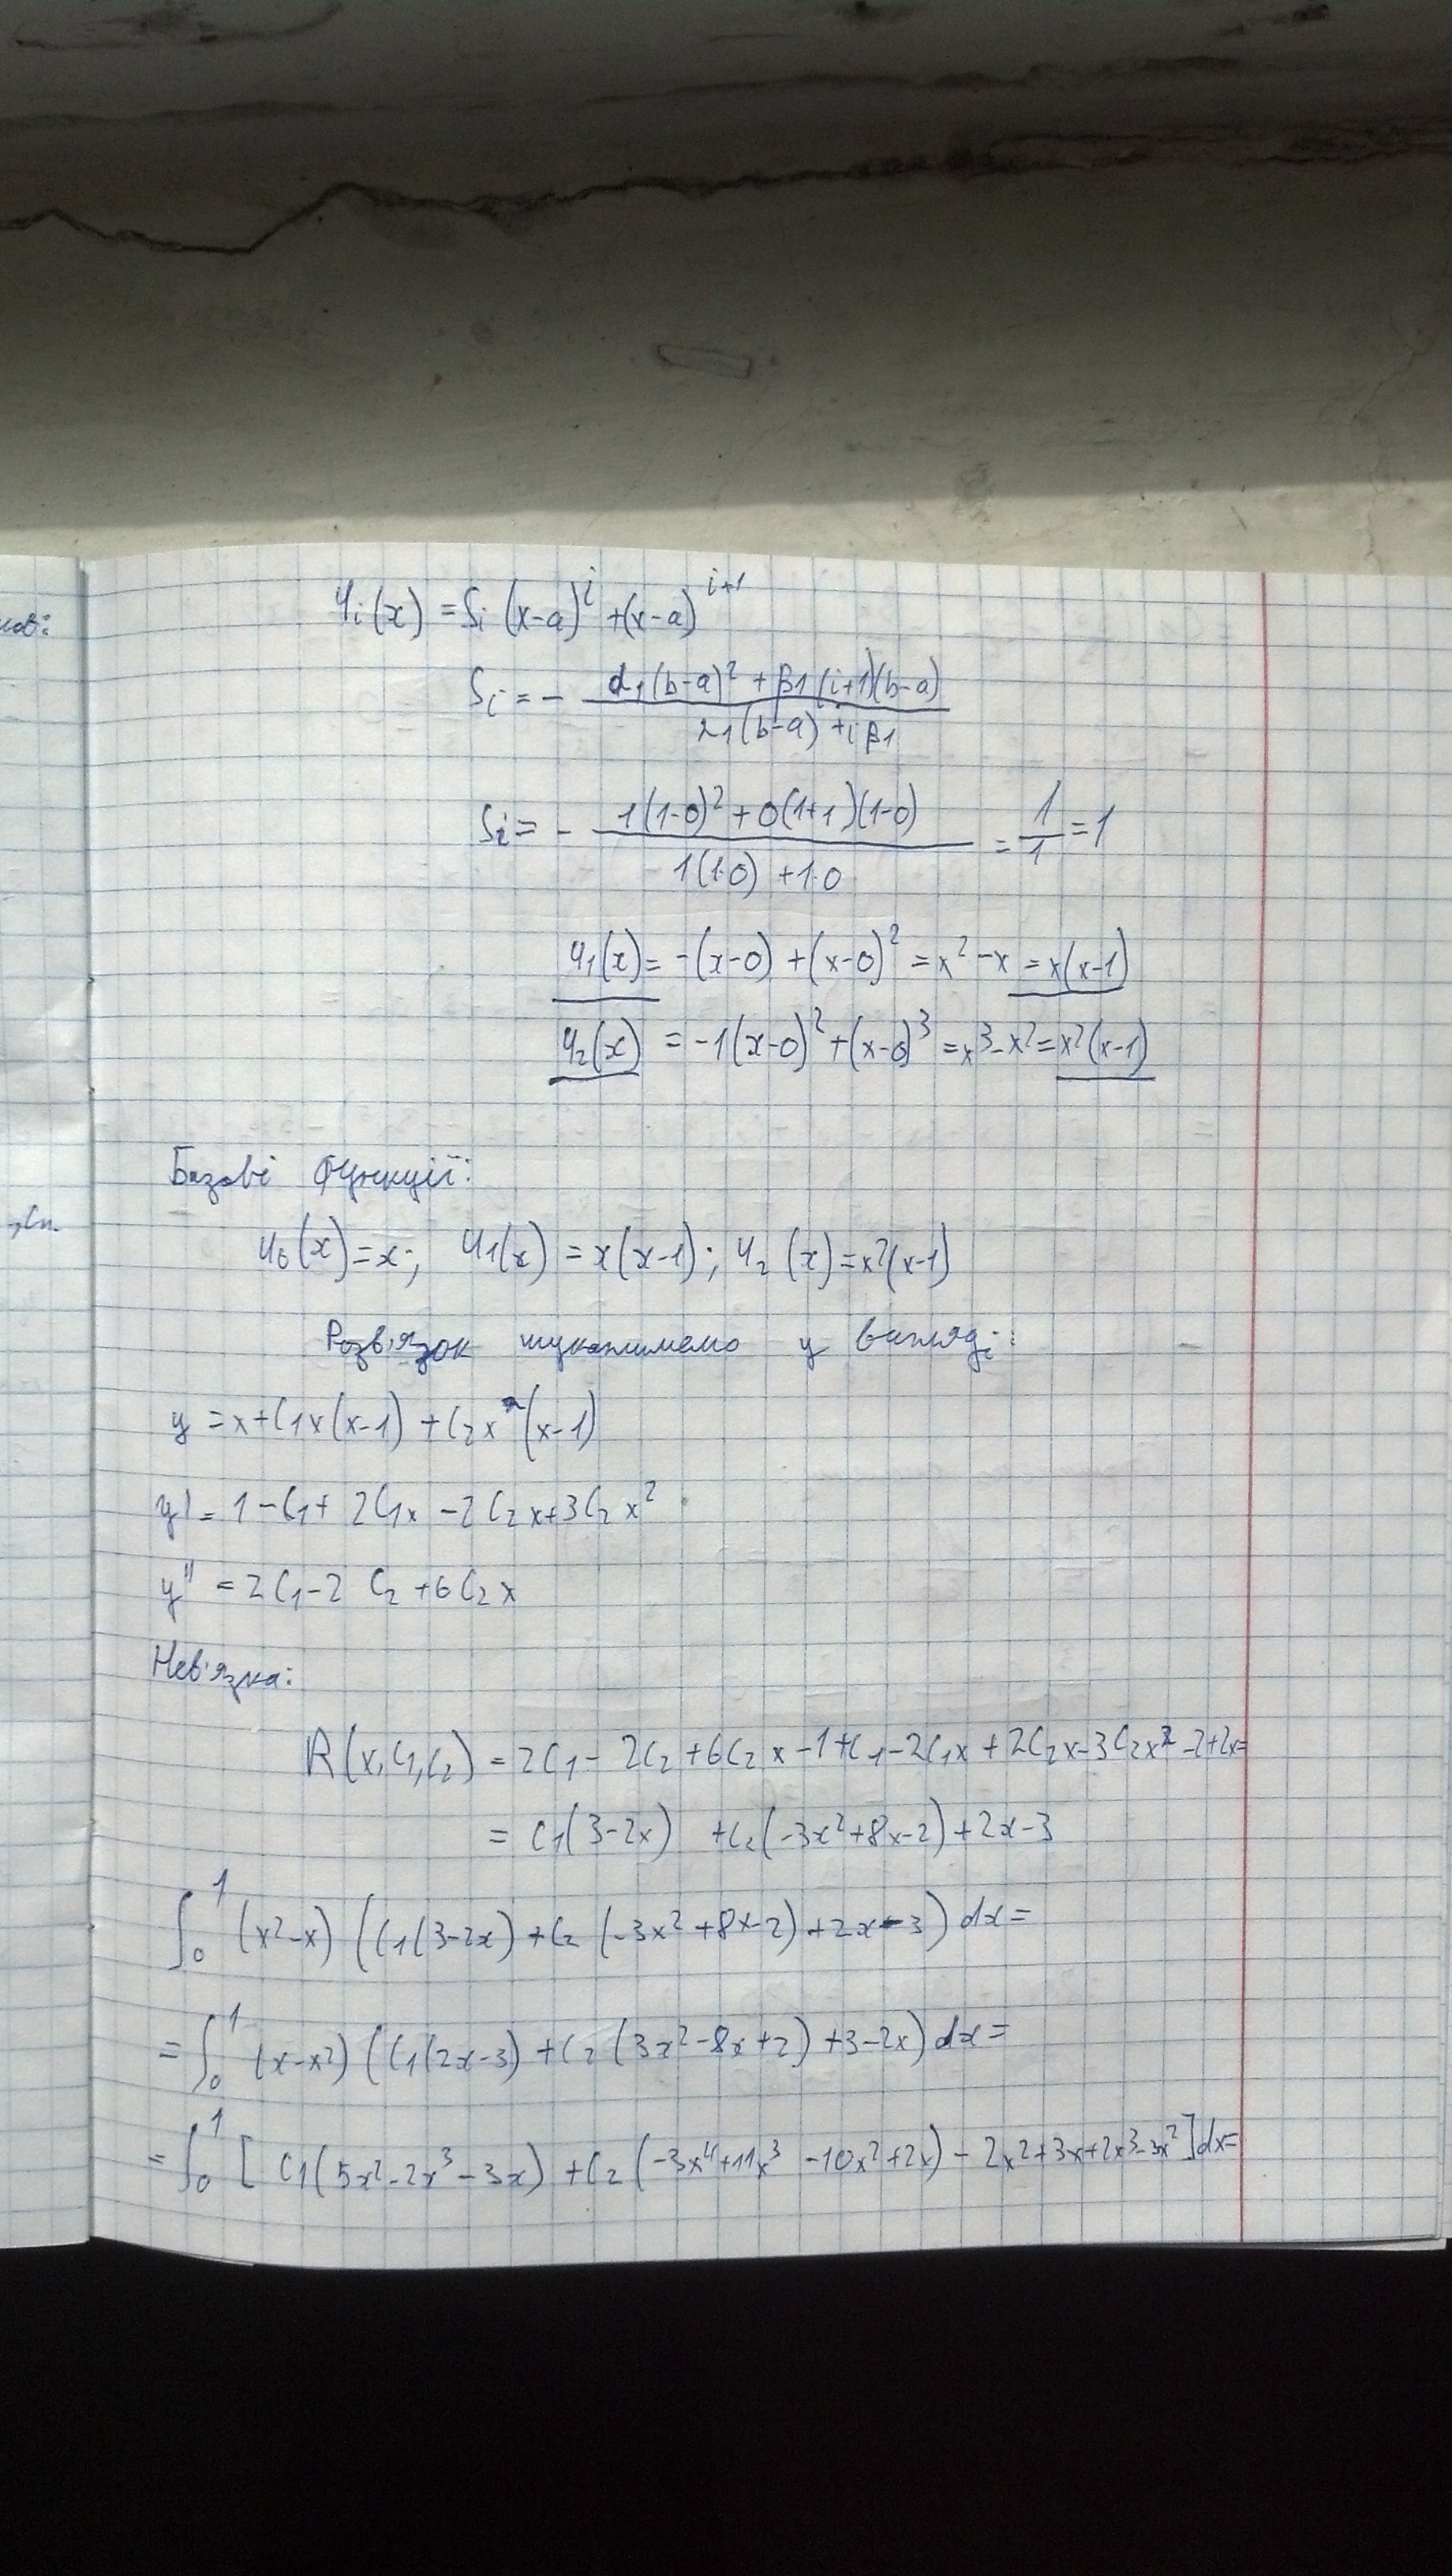 φi(x) = δi (x-a)^i + (x-a)^{i+1}
δi = - \frac{α1(b-a)^2 + β1(i+1)(b-a)}{α1(b-a) + iβ1}
δi = - \frac{1(1-0)^2 + 0(1+1)(1-0)}{1(1-0) + 1·0} = \frac{1}{1} = 1
φ1(x) = -(x-0) + (x-0)^2 = x^2 - x = x(x-1)
φ2(x) = -1(x-0)^2 + (x-0)^3 = x^3 - x^2 = x^2(x-1)
Базові функції:
,Cn.
φ0(x) = x; φ1(x) = x(x-1); φ2(x) = x^2(x-1)
Розв'язок шукатимемо у вигляді:
y = x + C1x(x-1) + C2x^2(x-1)
y' = 1 - C1 + 2C1x - 2C2x + 3C2x^2
y'' = 2C1 - 2C2 + 6C2x
Нев'язка:
R(x, C1, C2) = 2C1 - 2C2 + 6C2x - 1 + C1 - 2C1x + 2C2x - 3C2x^2 - 2 + 2x =
= C1(3-2x) + C2(-3x^2+8x-2) + 2x - 3
∫_0^1 (x^2-x) (C1(3-2x) + C2(-3x^2+8x-2) + 2x - 3) dx =
= ∫_0^1 (x-x^2) (C1(2x-3) + C2(3x^2-8x+2) + 3 - 2x) dx =
= ∫_0^1 [C1(5x^2-2x^3-3x) + C2(-3x^4+11x^3-10x^2+2x) - 2x^2+3x+2x^3-3x^2] dx =